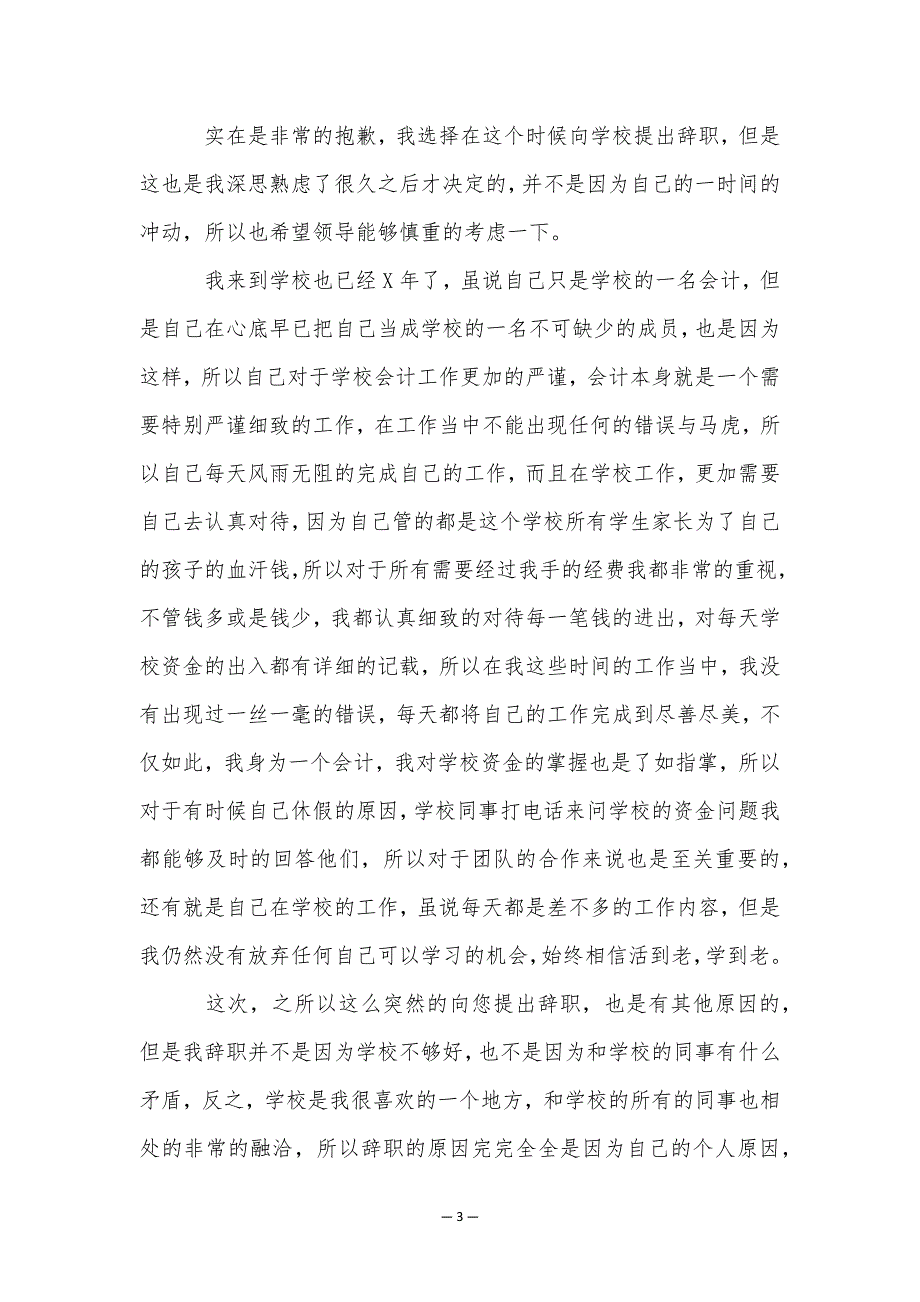 实在是非常的抱歉，我选择在这个时候向学校提出辞职，但是
这也是我深思熟虑了很久之后才决定的，并不是因为自己的一时间的
冲动，所以也希望领导能够慎重的考虑一下。
我来到学校也已经 X 年了，虽说自己只是学校的一名会计，但
是自己在心底早已把自己当成学校的一名不可缺少的成员，也是因为
这样，所以自己对于学校会计工作更加的严谨，会计本身就是一个需
要特别严谨细致的工作，在工作当中不能出现任何的错误与马虎，所
以自己每天风雨无阻的完成自己的工作，而且在学校工作，更加需要
自己去认真对待，因为自己管的都是这个学校所有学生家长为了自己
的孩子的血汗钱，所以对于所有需要经过我手的经费我都非常的重视，
不管钱多或是钱少，我都认真细致的对待每一笔钱的进出，对每天学
校资金的出入都有详细的记载，所以在我这些时间的工作当中，我没
有出现过一丝一毫的错误，每天都将自己的工作完成到尽善尽美，不
仅如此，我身为一个会计，我对学校资金的掌握也是了如指掌，所以
对于有时候自己休假的原因，学校同事打电话来问学校的资金问题我
都能够及时的回答他们，所以对于团队的合作来说也是至关重要的，
还有就是自己在学校的工作，虽说每天都是差不多的工作内容，但是
我仍然没有放弃任何自己可以学习的机会，始终相信活到老，学到老。
这次，之所以这么突然的向您提出辞职，也是有其他原因的，
但是我辞职并不是因为学校不够好，也不是因为和学校的同事有什么
矛盾，反之，学校是我很喜欢的一个地方，和学校的所有的同事也相
处的非常的融洽，所以辞职的原因完完全全是因为自己的个人原因，
— 3 —